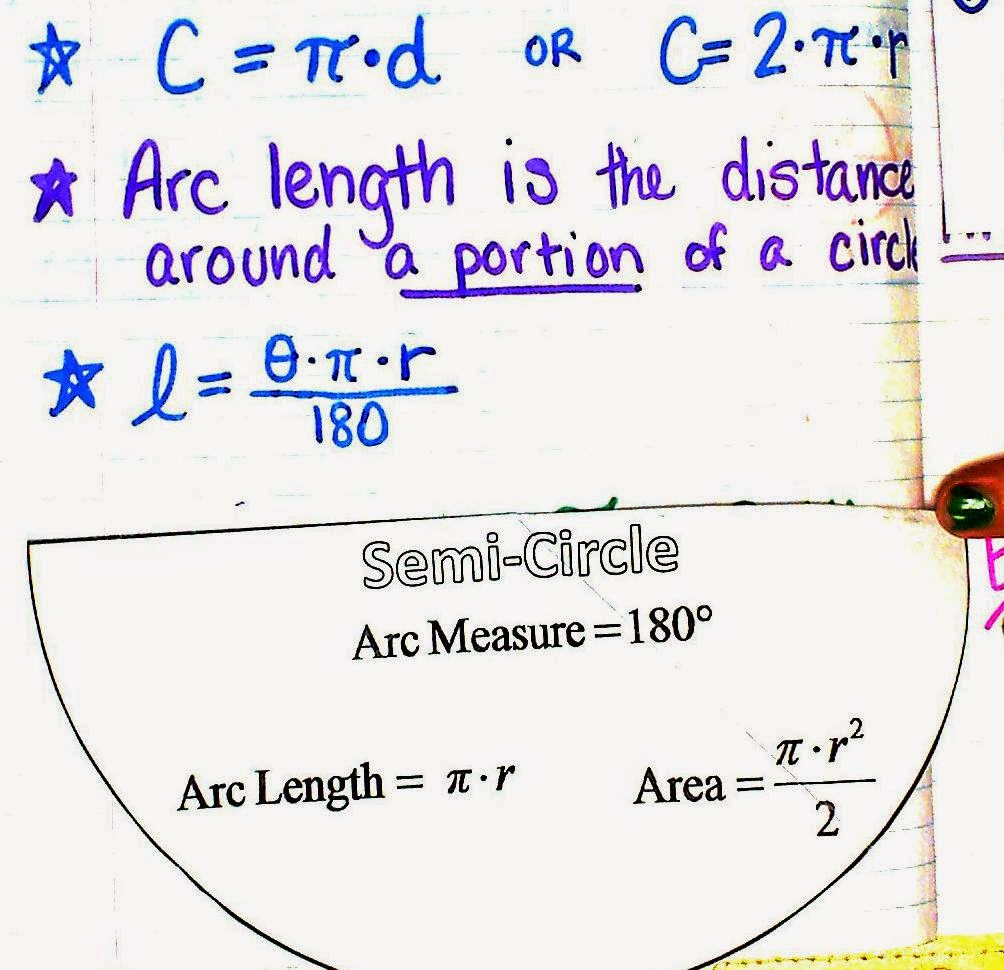 ☆ C = π·d OR C = 2·π·r
☆ Arc length is the distance
around a portion of a circle
☆ l = θ·π·r / 180
Semi-Circle
Arc Measure = 180°
Arc Length = π·r Area = π·r² / 2